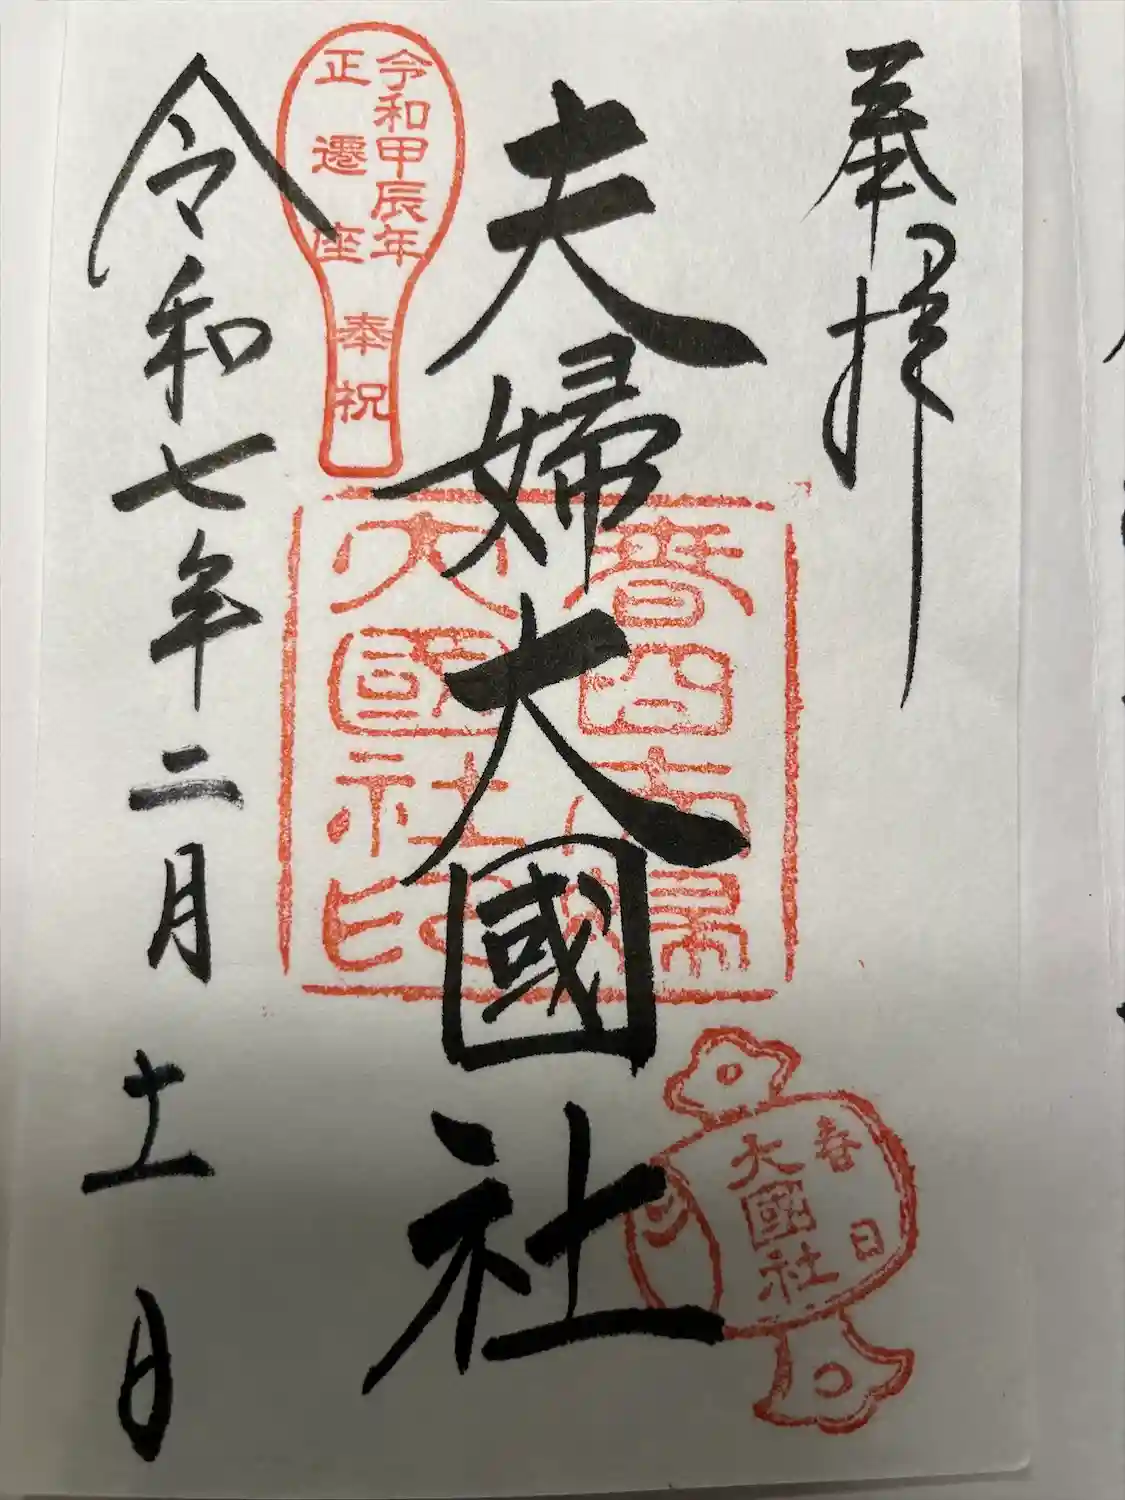 奉拝
夫婦大國社
春日夫婦
大國社印
春日
大國社
令和甲辰年
正遷座
奉祝
令和七年二月十一日